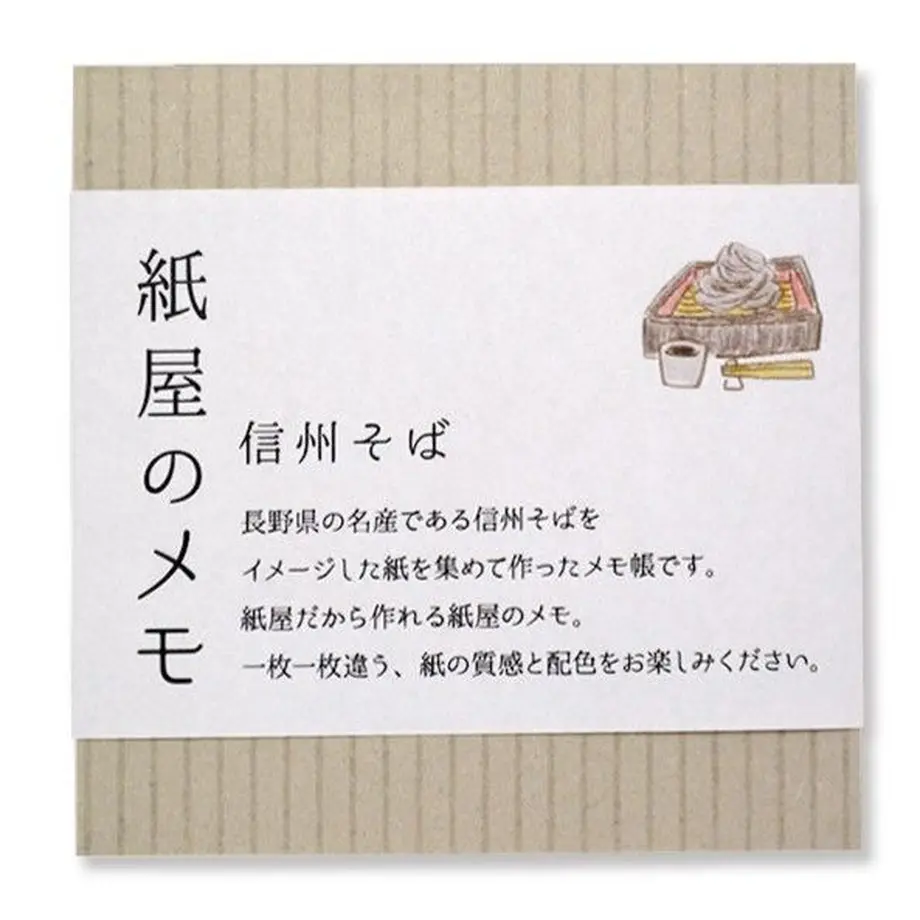 紙屋のメモ
信州そば
長野県の名産である信州そばを
イメージした紙を集めて作ったメモ帳です。
紙屋だから作れる紙屋のメモ。
一枚一枚違う、紙の質感と配色をお楽しみください。